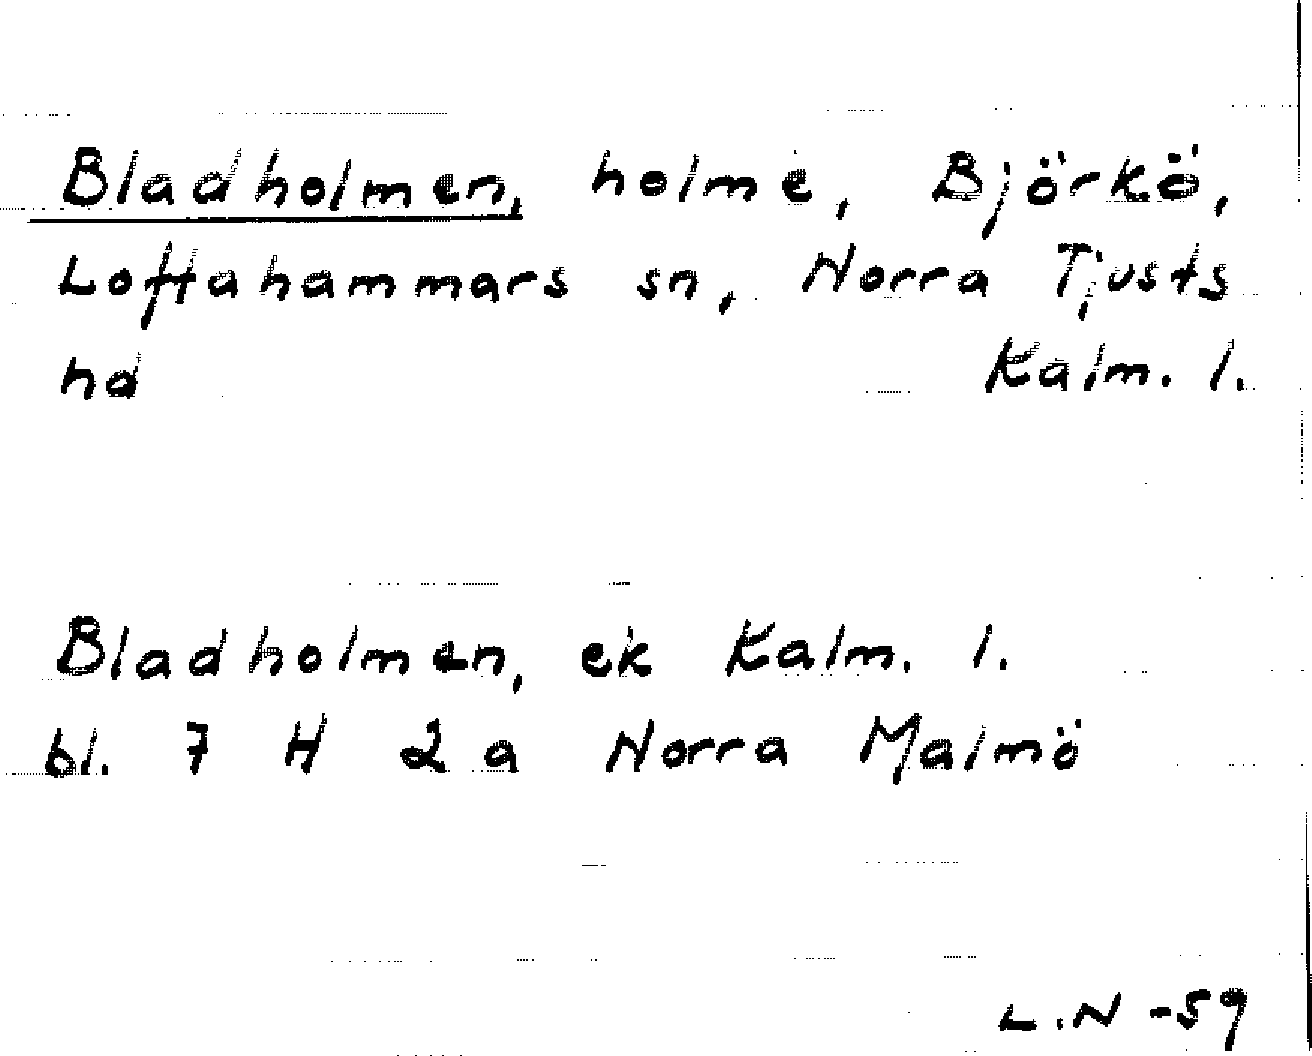 Bladholmen, holme, Björkö,
Loftahammars sn, Norra Tjusts
hd Kalm. l.
Bladholmen, ek Kalm. l.
bl. 7 H 2 a Norra Malmö
L.N -59